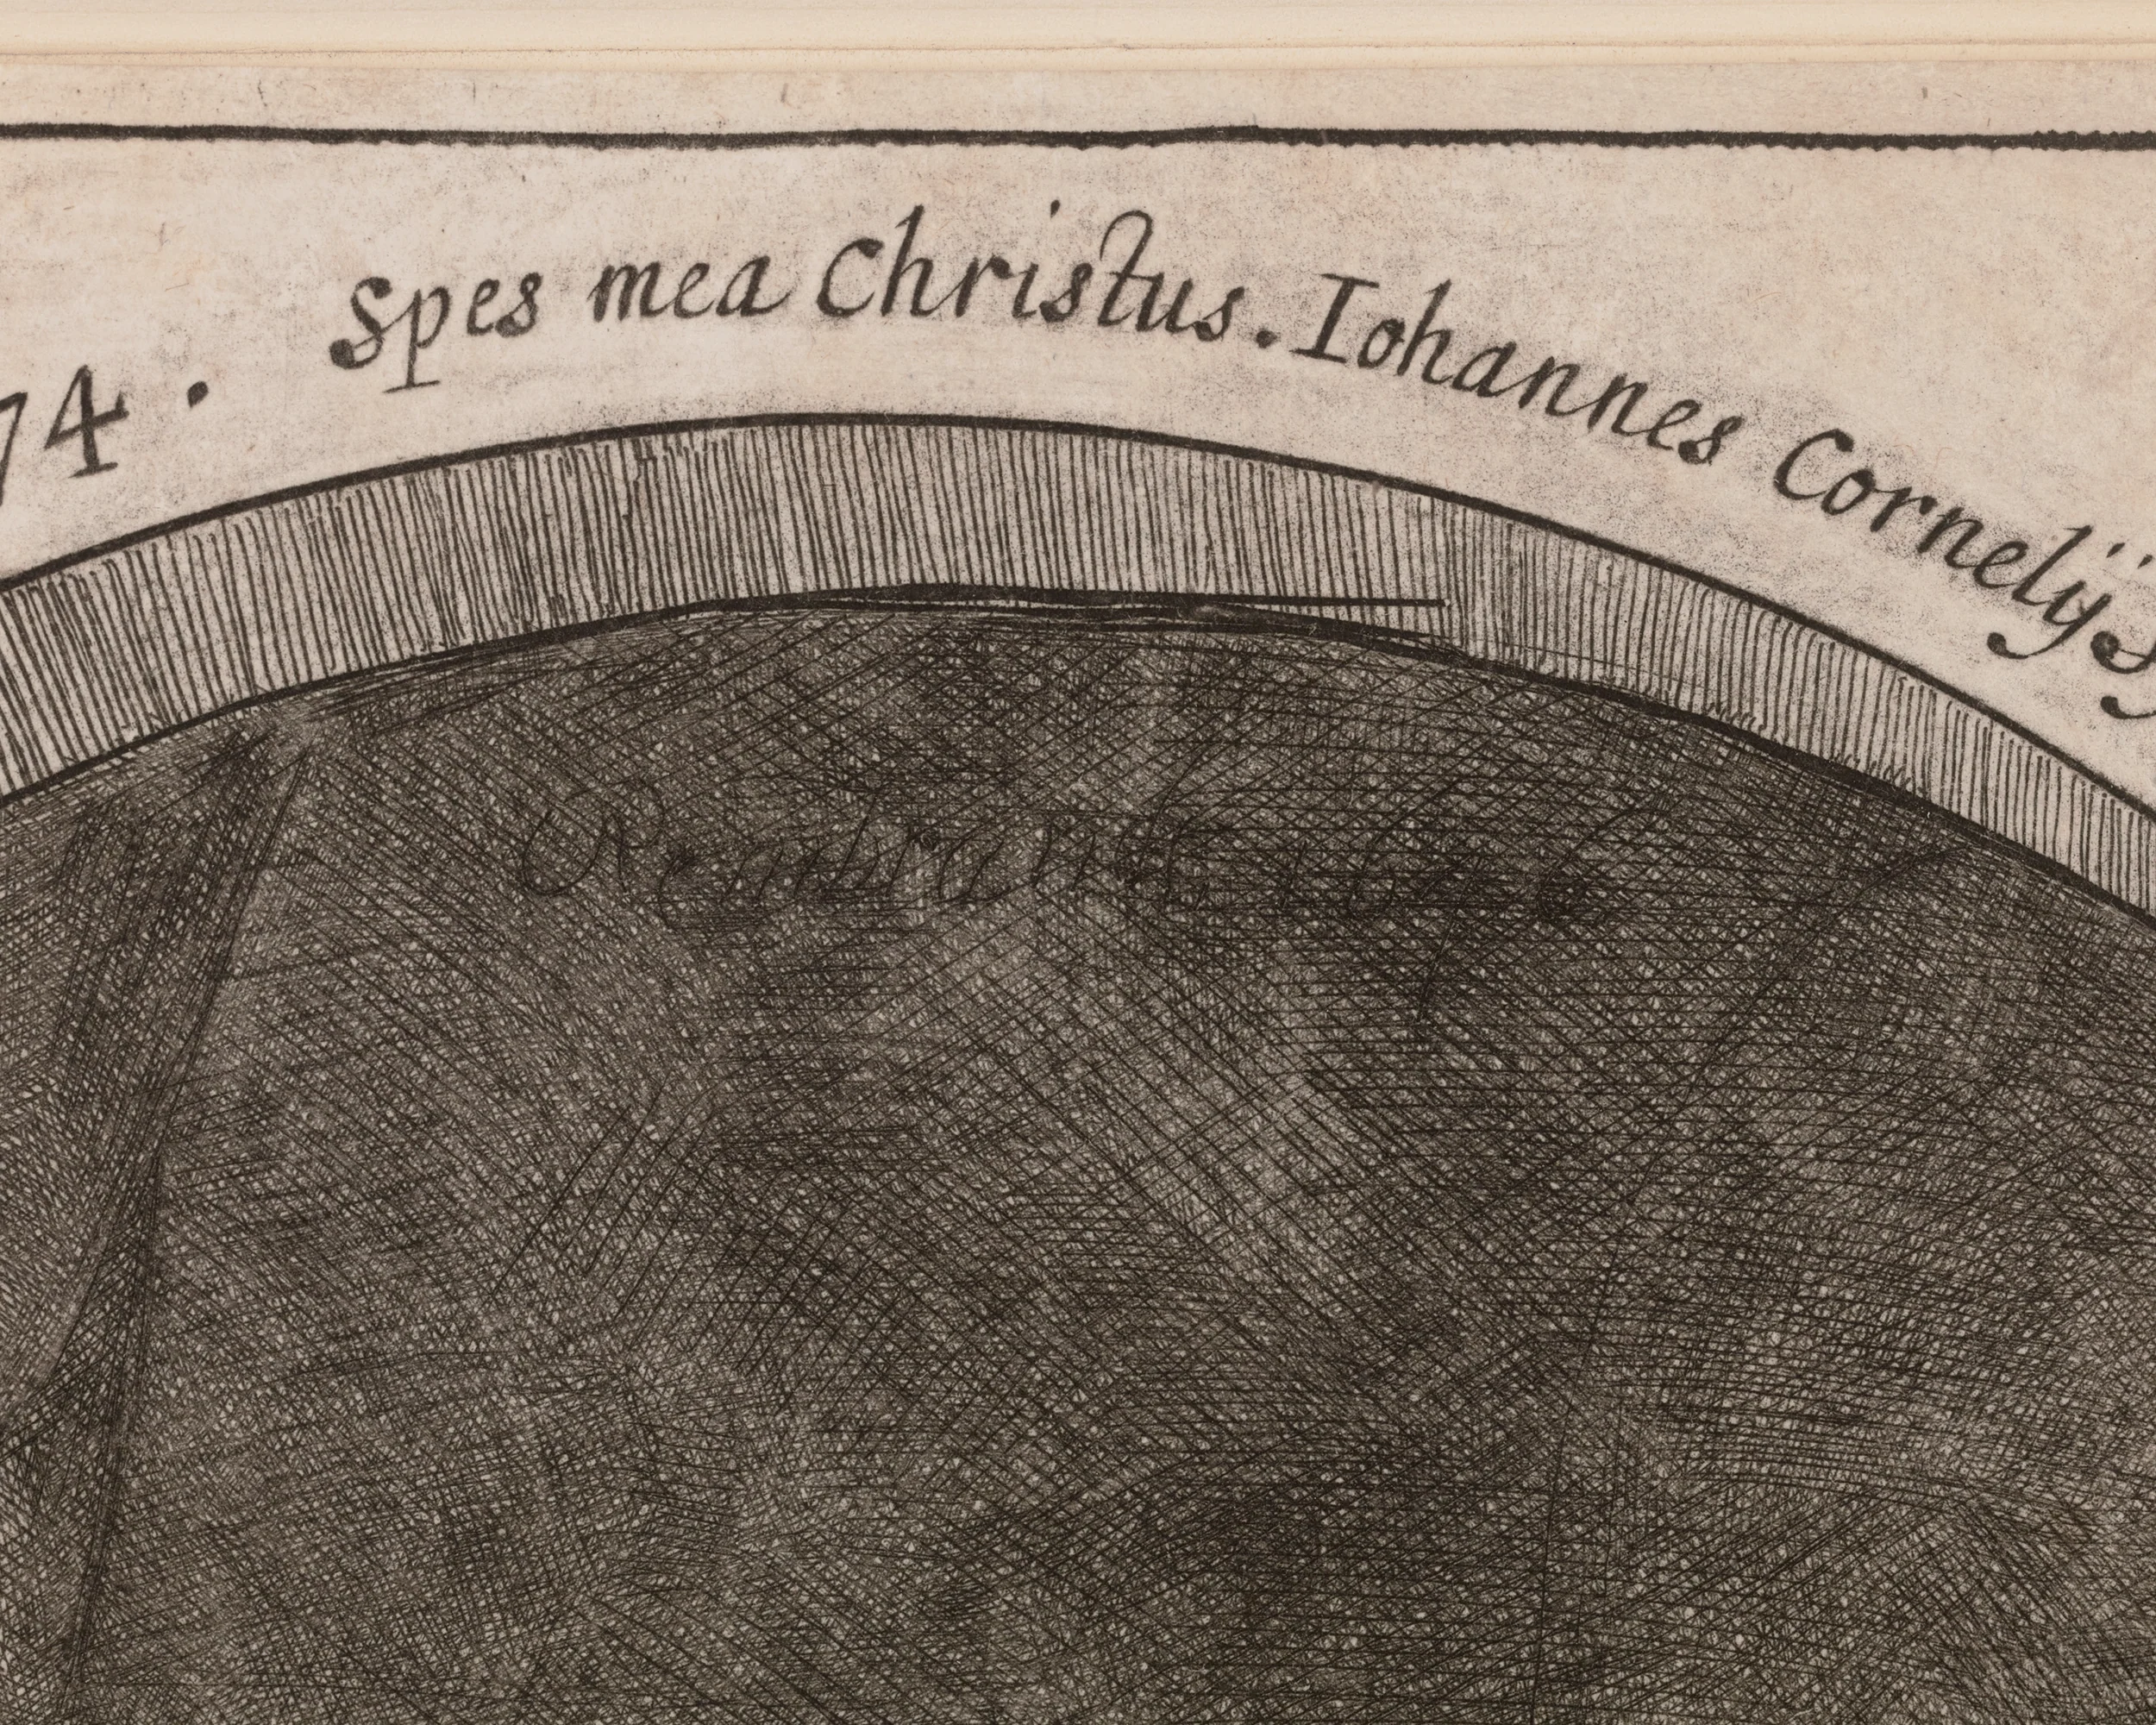 74 . Spes mea Christus . Iohannes Cornelÿs
Rembrandt